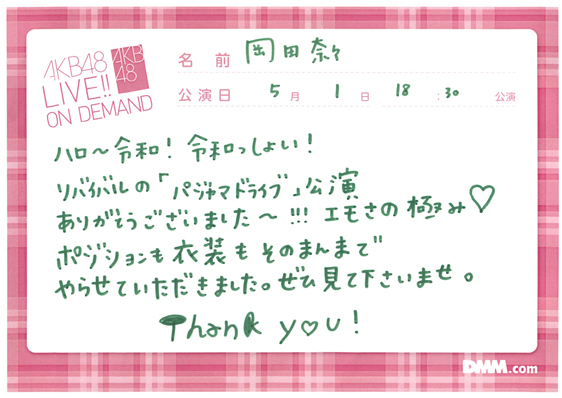 AKB48
LIVE!!
ON DEMAND
AKB
48
名前 岡田奈々
公演日 5月1日 18:30 公演
ハロ〜令和! 令和っしょい!
リバイバルの「パジャマドライブ」公演
ありがとうございました〜!!! エモさの極み♡
ポジションも衣装もそのまんまで
やらせていただきました。ぜひ見て下さいませ。
Thank you!
DMM.com